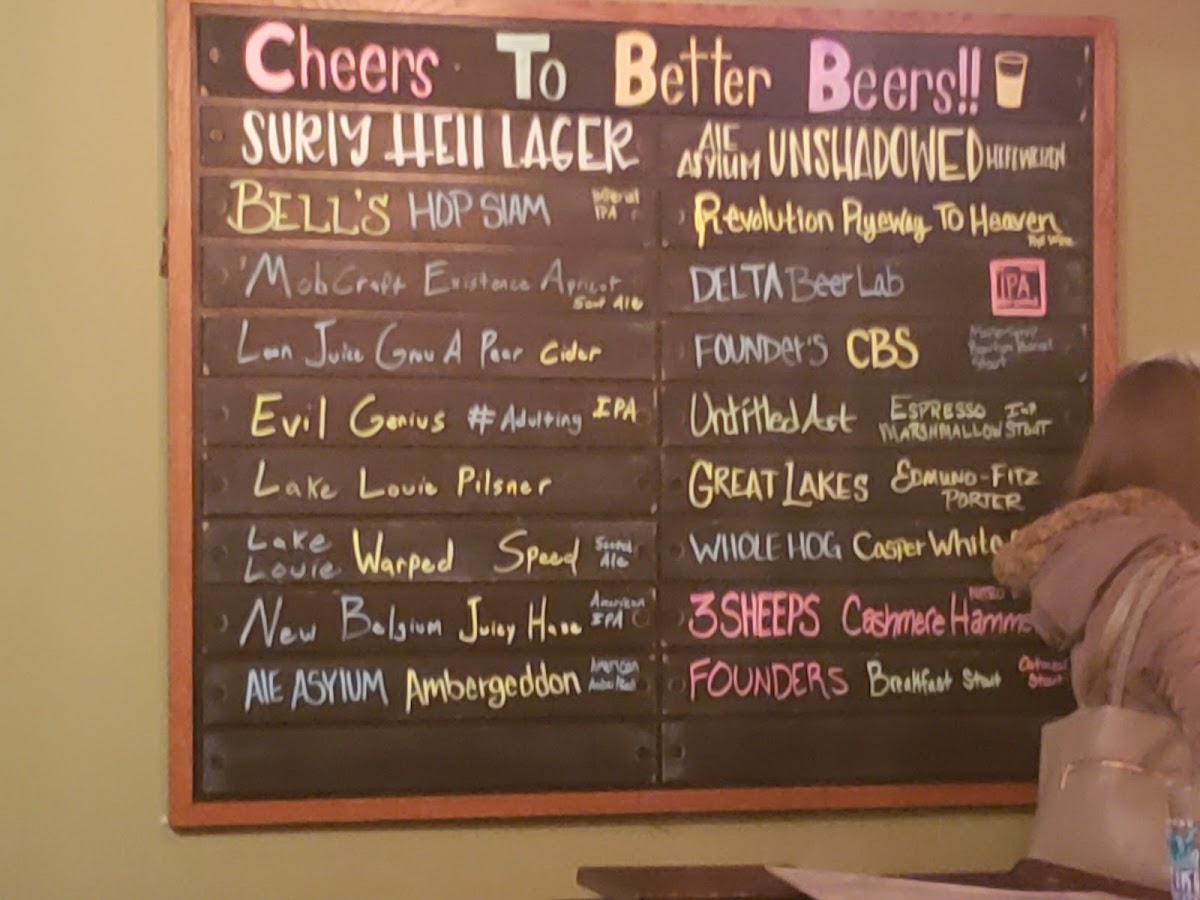 Cheers To Better Beers!!
SURLY HELL LAGER
BELL'S HOP SLAM Imperial IPA
MobCraft Existence Apricot Sour Ale
Loon Juice Grow A Pear Cider
Evil Genius #Adulting IPA
Lake Louie Pilsner
Lake Louie Warped Speed Scotch Ale
New Belgium Juicy Haze American IPA
ALE ASYLUM Ambergeddon American
ALE ASYLUM UNSHADOWED HEFEWEIZEN
Revolution Ryeway To Heaven Rye Wine
DELTA Beer Lab IPA
FOUNDER'S CBS Stout
Untitled Art ESPRESSO IMP MARSHMALLOW STOUT
GREAT LAKES EDMUND-FITZ PORTER
WHOLE HOG Casper White
3 SHEEPS Cashmere NITRO
FOUNDERS Breakfast Stout Oatmeal Stout